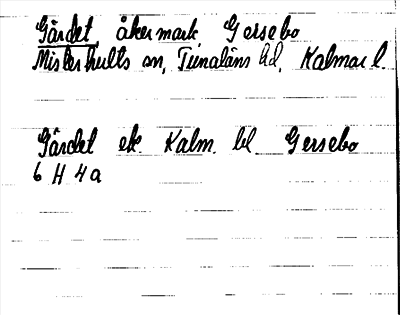 Gärdet, åkermark, Gersebo
Misterhults sn, Tunaläns hd, Kalmar l.
Gärdet ek. Kalm. bl Gersebo
6 H 4 a